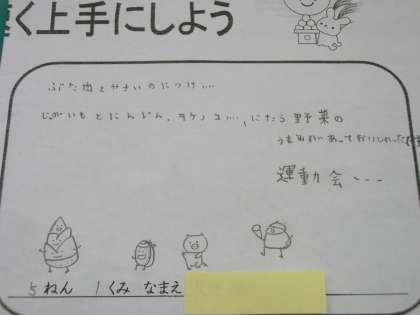 く上手にしよう
ぶた肉とやさいのにつけ....
じゃがいもとにんじん、タケノコ....、にたら野菜の
うまみがあっておいしかった
運動会---
5ねん 1くみ なまえ